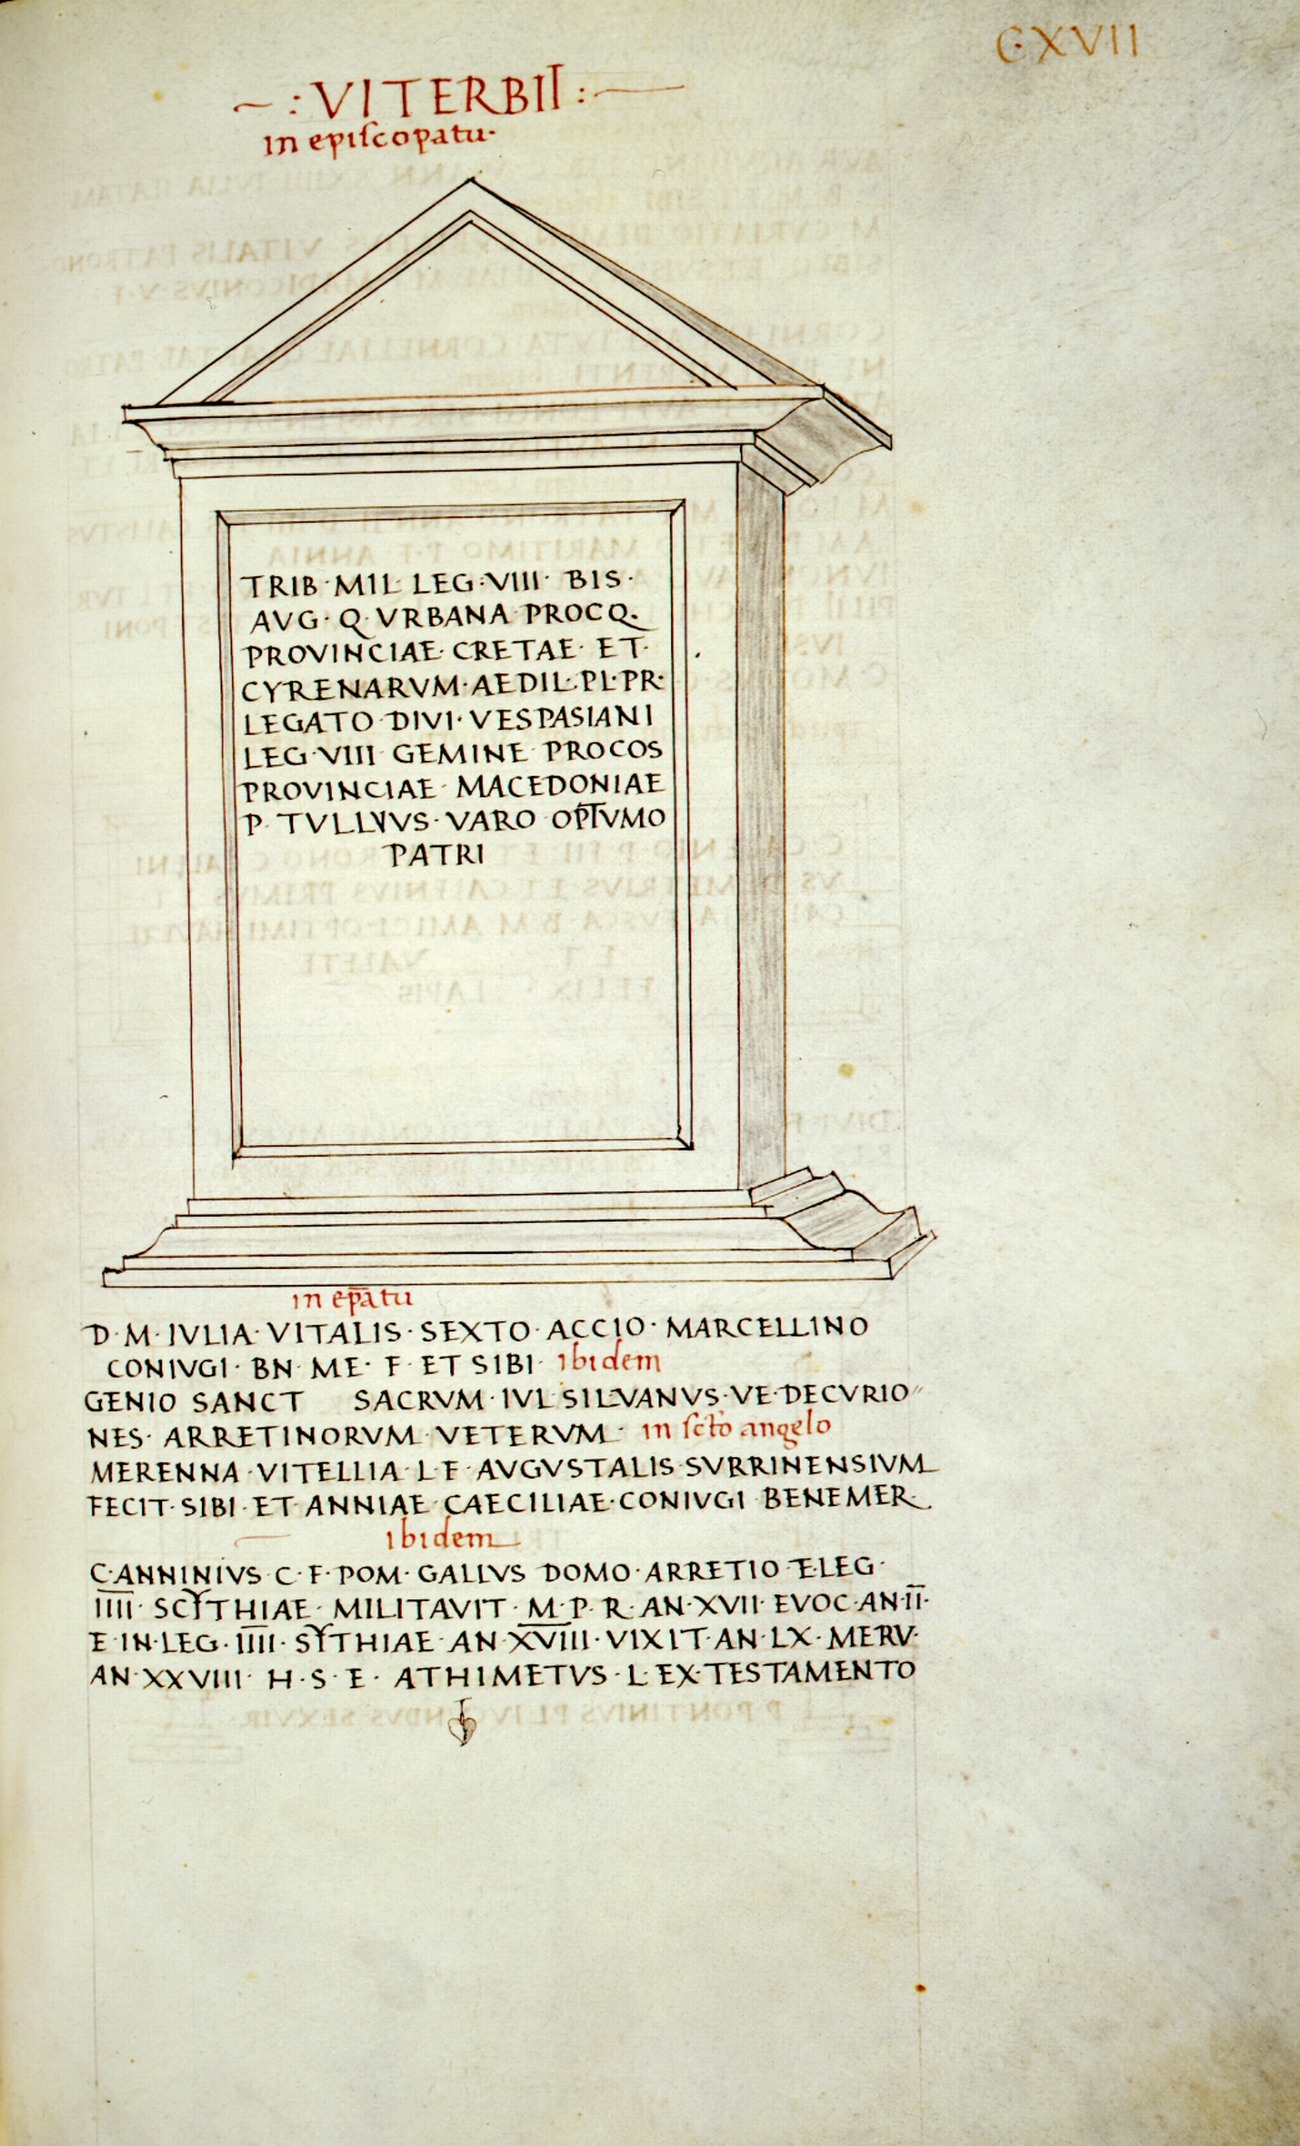 C·XVII
~ :VITERBII: ~
in episcopatu·
TRIB·MIL·LEG·:VIII· BIS·
AVG·Q·VRBANA PROCQ.
PROVINCIAE· CRETAE· ET·
CYRENARVM·AEDIL·PL·PR·
LEGATO·DIVI·VESPASIANI
LEG·VIII GEMINE PROCOS
PROVINCIAE· MACEDONIAE
P· TVLLVVS·VARO OPTVMO
PATRI
in ep̄atu
D·M·IVLIA·VITALIS·SEXTO·ACCIO·MARCELLINO
CONIVGI· BN· ME· F· ET SIBI· ibidem
GENIO SANCT SACRVM·IVL·SILVANVS·VE·DECVRIO
NES· ARRETINORVM VETERVM· in scto angelo
MERENNA·VITELLIA·L·F·AVGVSTALIS·SVRRINENSIVM
FECIT·SIBI·ET·ANNIAE CAECILIAE·CONIVGI BENEMER.
ibidem
C·ANNINIVS·C·F·POM·GALLVS DOMO·ARRETIO·E·LEG·
I̅I̅I̅I̅· SCYTHIAE· MILITAVIT·M·P·R·AN·XVII·EVOC·AN·I̅I̅·
E·IN·LEG·I̅I̅I̅I̅·SYTHIAE·AN·XVIII·VIXIT·AN·LX·MERV·
AN·XXVIII· H·S·E· ATHIMETVS·L·EX·TESTAMENTO